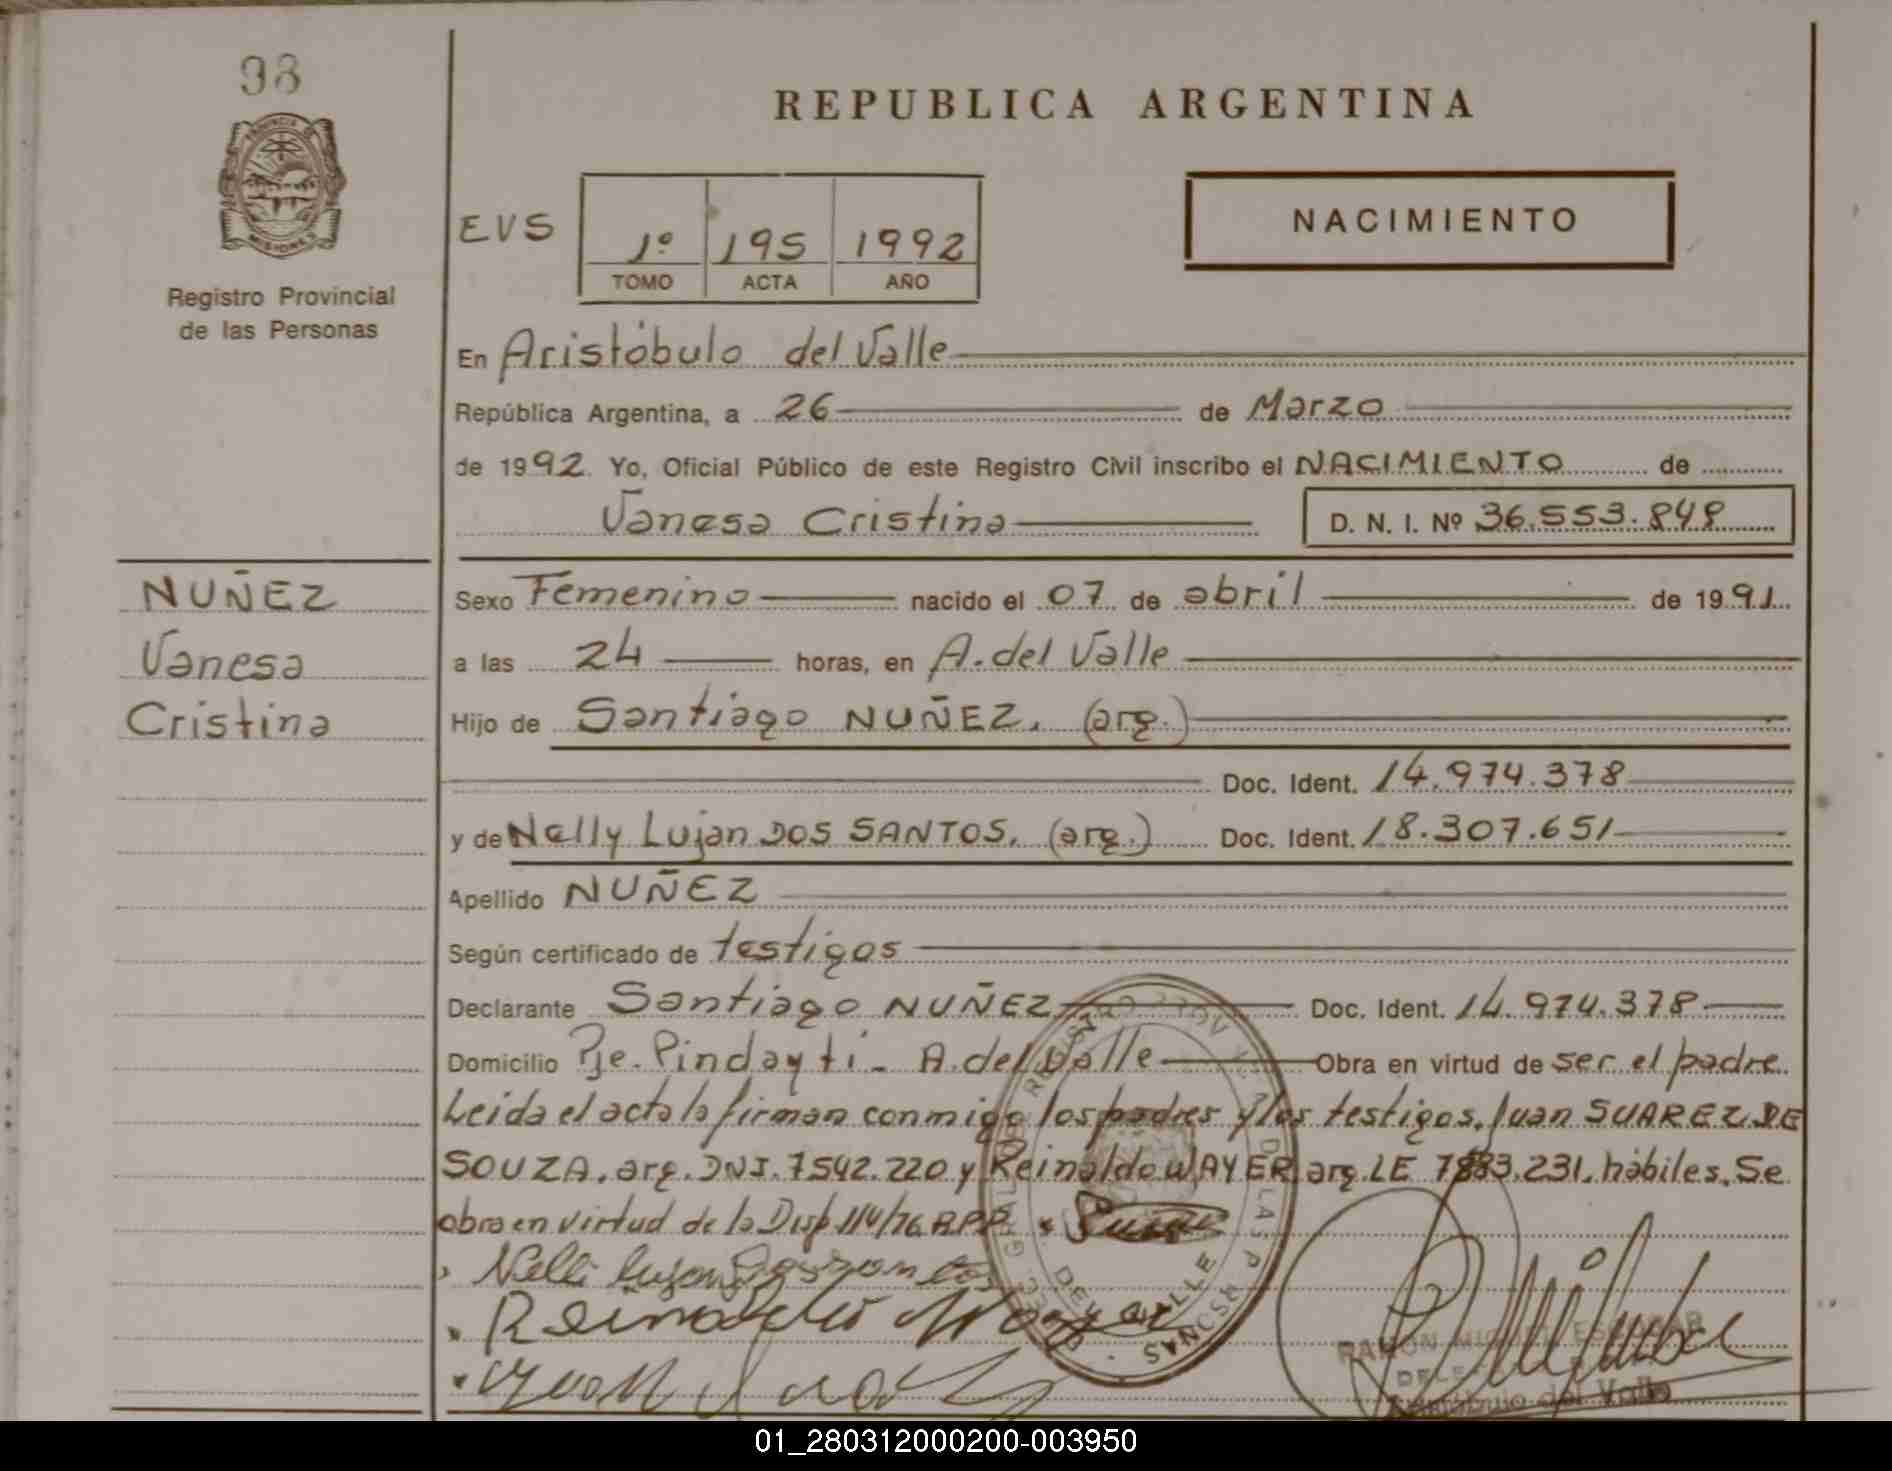 98
PROVINCIA DE
MISIONES
Registro Provincial
de las Personas
REPUBLICA ARGENTINA
EVS
1º 195 1992
TOMO ACTA AÑO
NACIMIENTO
En Aristóbulo del Valle
República Argentina, a 26 de Marzo
de 1992. Yo, Oficial Público de este Registro Civil inscribo el NACIMIENTO de
Vanesa Cristina D. N. I. Nº 36.553.848
NUÑEZ
Vanesa
Cristina
Sexo Femenino nacido el 07 de abril de 1991
a las 24 horas, en A. del Valle
Hijo de Santiago NUÑEZ. (arg.)
Doc. Ident. 14.974.378
y de Nelly Lujan DOS SANTOS. (arg.) Doc. Ident. 18.307.651
Apellido NUÑEZ
Según certificado de testigos
Declarante Santiago NUÑEZ Doc. Ident. 14.974.378
Domicilio Pje. Pindayti - A. del Valle Obra en virtud de ser el padre.
Leida el acta la firman conmigo los padres y los testigos. Juan SUAREZ DE
SOUZA. arg. DNI. 7542.220 y Reinaldo WAYER arg. LE 7883.231. hábiles. Se
obra en virtud de la Disp 114/76 RPP.
Nelli lujan
Reinaldo
RAMON MIGUEL
Aristóbulo del Valle
01_280312000200-003950